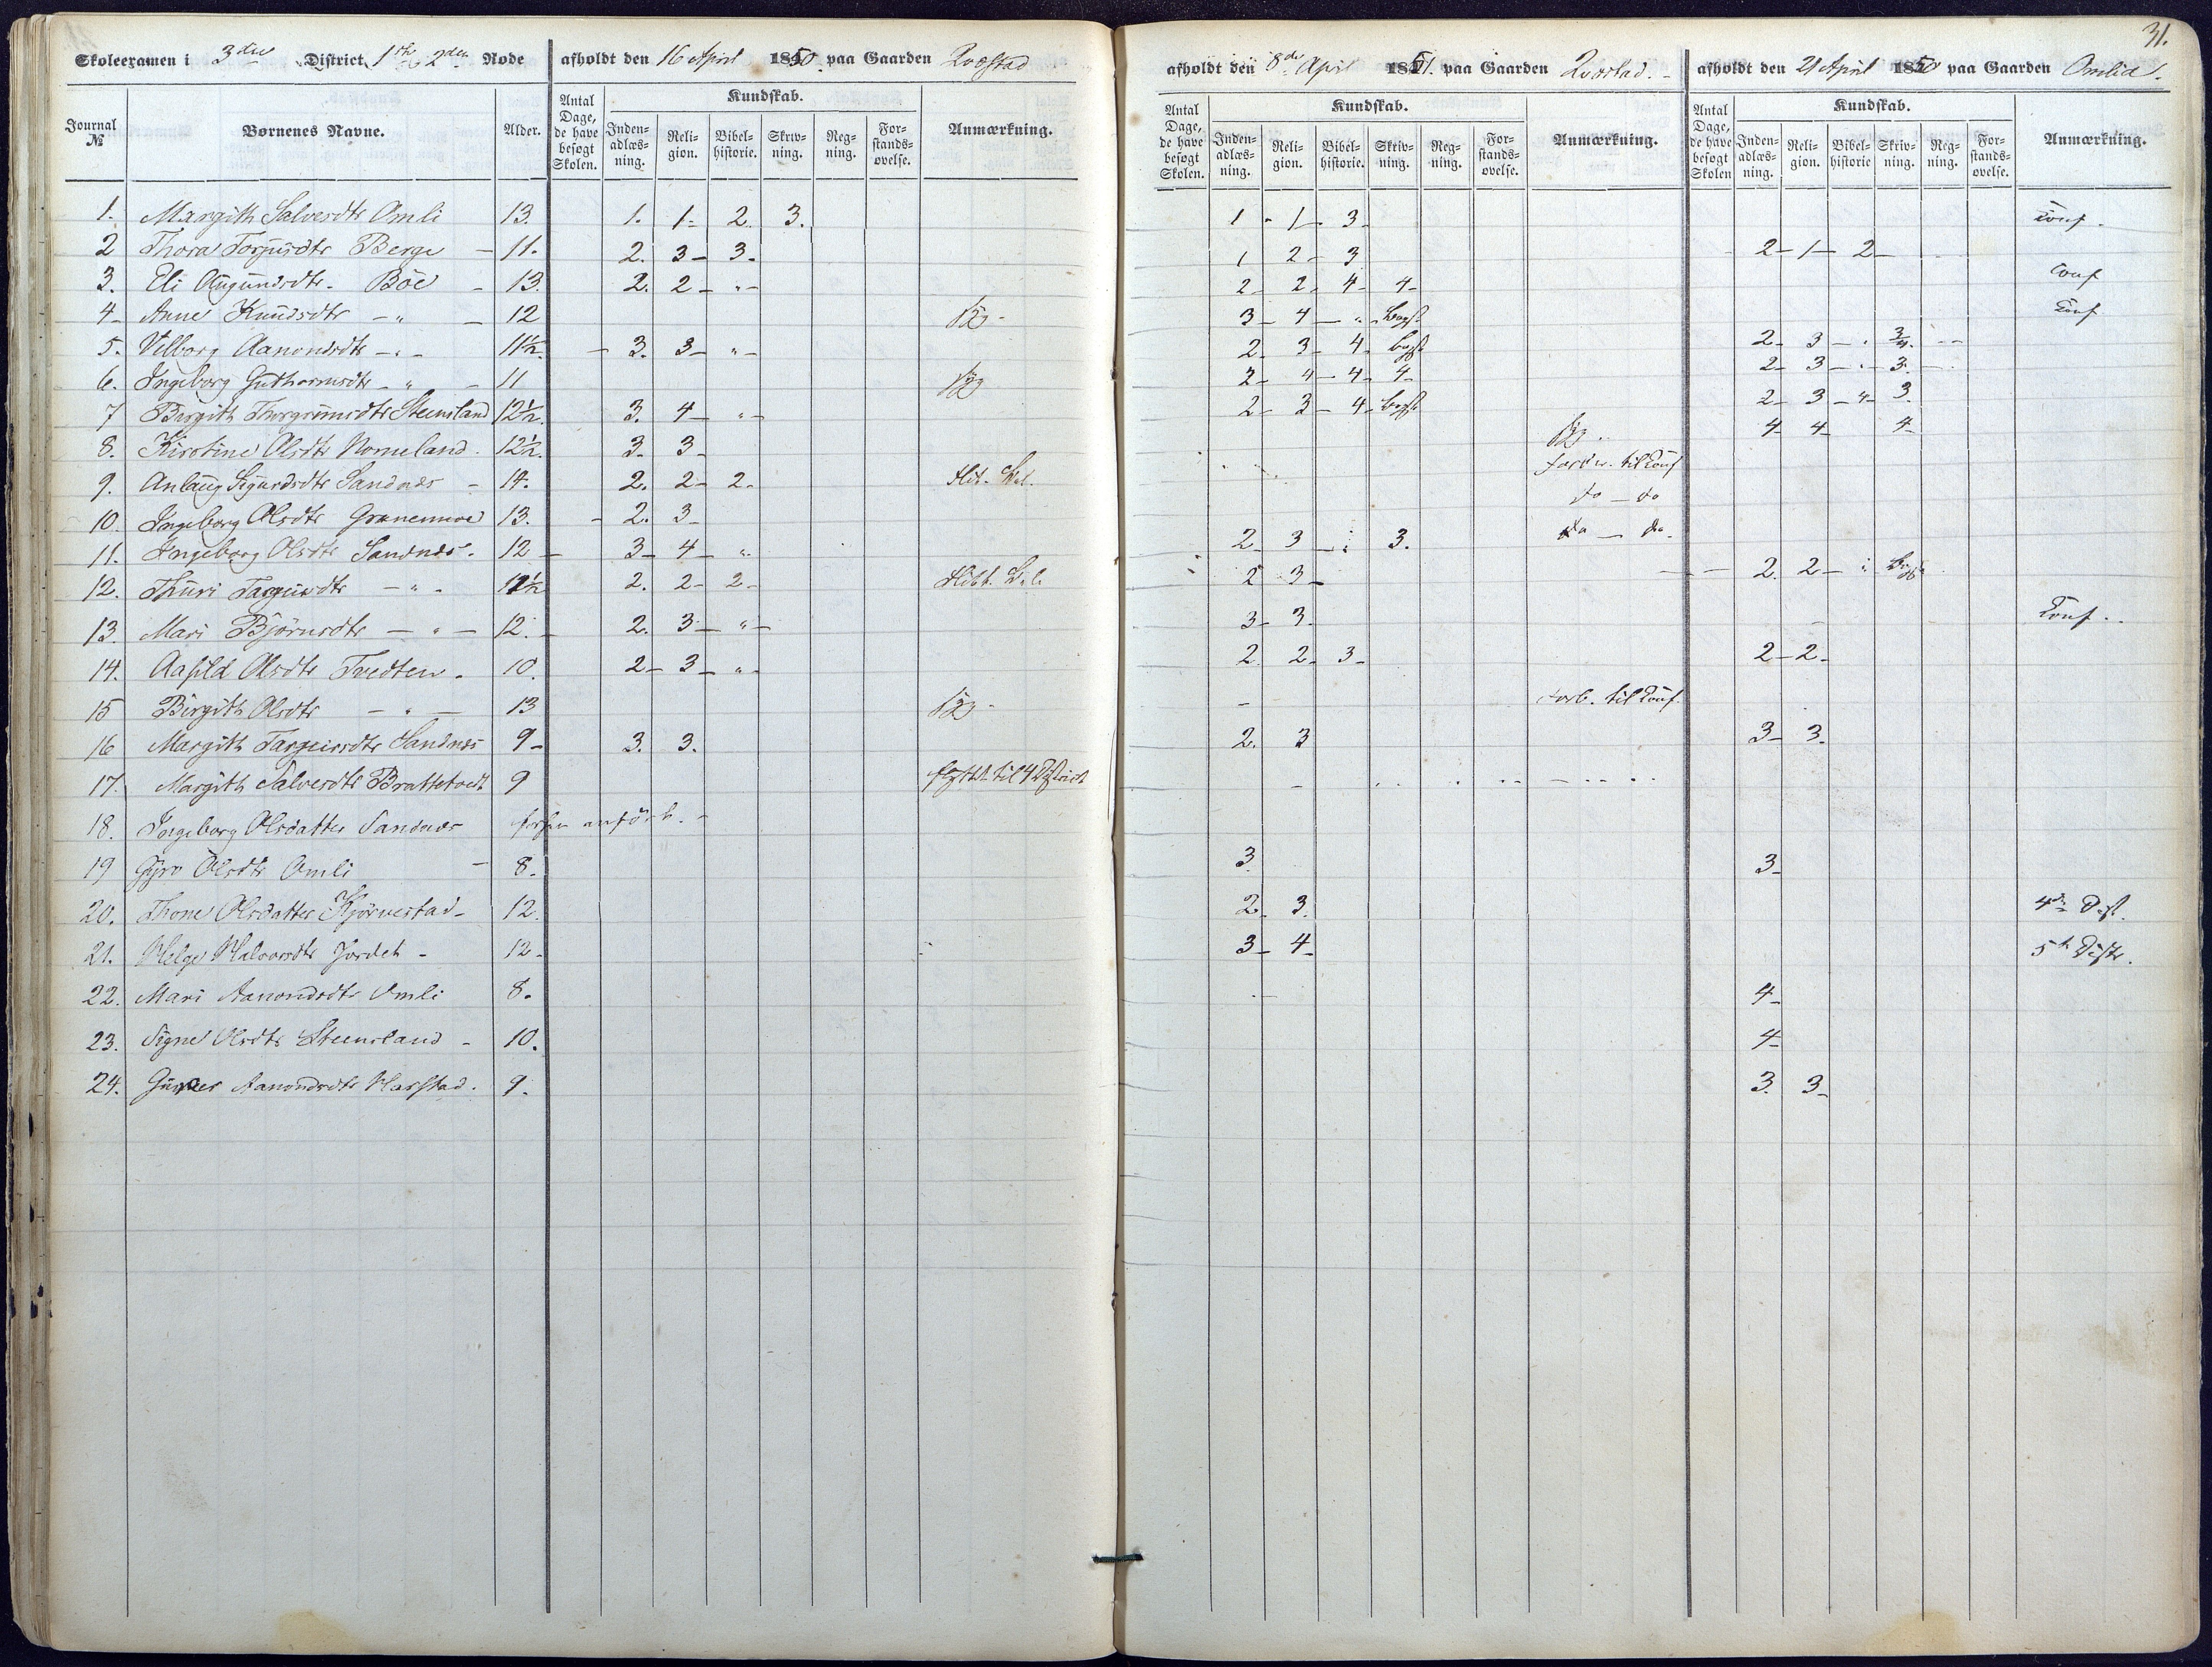 31.
Skoleexamen i 3die District 1ste & 2den Rode afholdt den 16 April 1850 paa Gaarden Qvæstad
afholdt den 8de April 1851. paa Gaarden Qvæstad. afholdt den 21 April 1850 paa Gaarden Omlid.
Journal № Børnenes Navne. Alder. Antal Dage, de have besøgt Skolen. Kundskab. Inden-adlæs-ning. Reli-gion. Bibel-historie. Skriv-ning. Reg-ning. For-stands-øvelse. Anmærkning.
Antal Dage, de have besøgt Skolen. Kundskab. Inden-adlæs-ning. Reli-gion. Bibel-historie. Skriv-ning. Reg-ning. For-stands-øvelse. Anmærkning.
Antal Dage, de have besøgt Skolen Kundskab. Inden-adlæs-ning. Reli-gion. Bibel-historie Skriv-ning. Reg-ning. For-stands-øvelse. Anmærkning.
1. Margith Salvesdtr Omli 13. 1. 1- 2. 3. 1 - 1- 3- Conf.
2 Thora Torjusdtr Berge - 11. 2. 3- 3- 1 2- 3 2- 1- 2-
3. Eli Augundsdtr. Böe - 13. 2. 2- "- 2- 2- 4- 4- Conf
4- Anne Knudsdtr - " - 12 syg- 3- 4- " Begst Conf
5. Velborg Aanondsdtr - " - 11½. - 3. 3- "- 2- 3- 4- begst 2- 3- " 3/4.
6. Ingeborg Guthormsdtr - " - 11 syg 2- 4- 4- 4- 2- 3- "- 3.
7 Birgith Thorgrimsdtr Steensland 12½. 3. 4- "- 2- 3- 4- Begst 2- 3- "- 3.
8. Kirstine Olsdtr Nomeland. 12½. 3- 3- syg 4- 4- 4-
9. Anlaug Sigurdsdtr Sandnes - 14. 2. 2- 2- til Conf
10. Ingeborg Olsdtr Granemoe 13. - 2. 3- do - do
11. Ingeborg Olsdtr Sandnes. 12 - 3- 4- " 2- 3- " 3. do - do.
12. Thuri Targeirsdtr - " - 2. 2- 2- 2 3- 2. 2- "
13. Mari Björnsdtr - " - 12. - 2. 3- "- 3- 3. Conf.
14. Aasild Olsdtr Tvedten. 10. 2- 3- "- 2. 2- 3- 2- 2-
15 Birgith Olsdtr - " - 13 syg- - forb. til Conf.
16 Margith Targeirsdtr Sandnes 9- 3. 3. 2. 3 3- 3.
17. Margith Salvesdtr Brattetvedt 9 flyttet til 4 District -
18. Ingeborg Olsdatter Sandnes forhen anfört. -
19 Gyro Olsdtr Omli - 8. 3. 3-
20. Thone Olsdatter Kjörnestad- 12. 2- 3. 4de Dist.
21. Helge Halvorsdtr Jordet - 12- 3- 4- 5te Distr.
22. Mari Aanondsdtr Omli 8. 4-
23. Signe Olsdtr Steensland - 10. 4-
24. Aanondsdtr Harstad. 9. 3. 3-